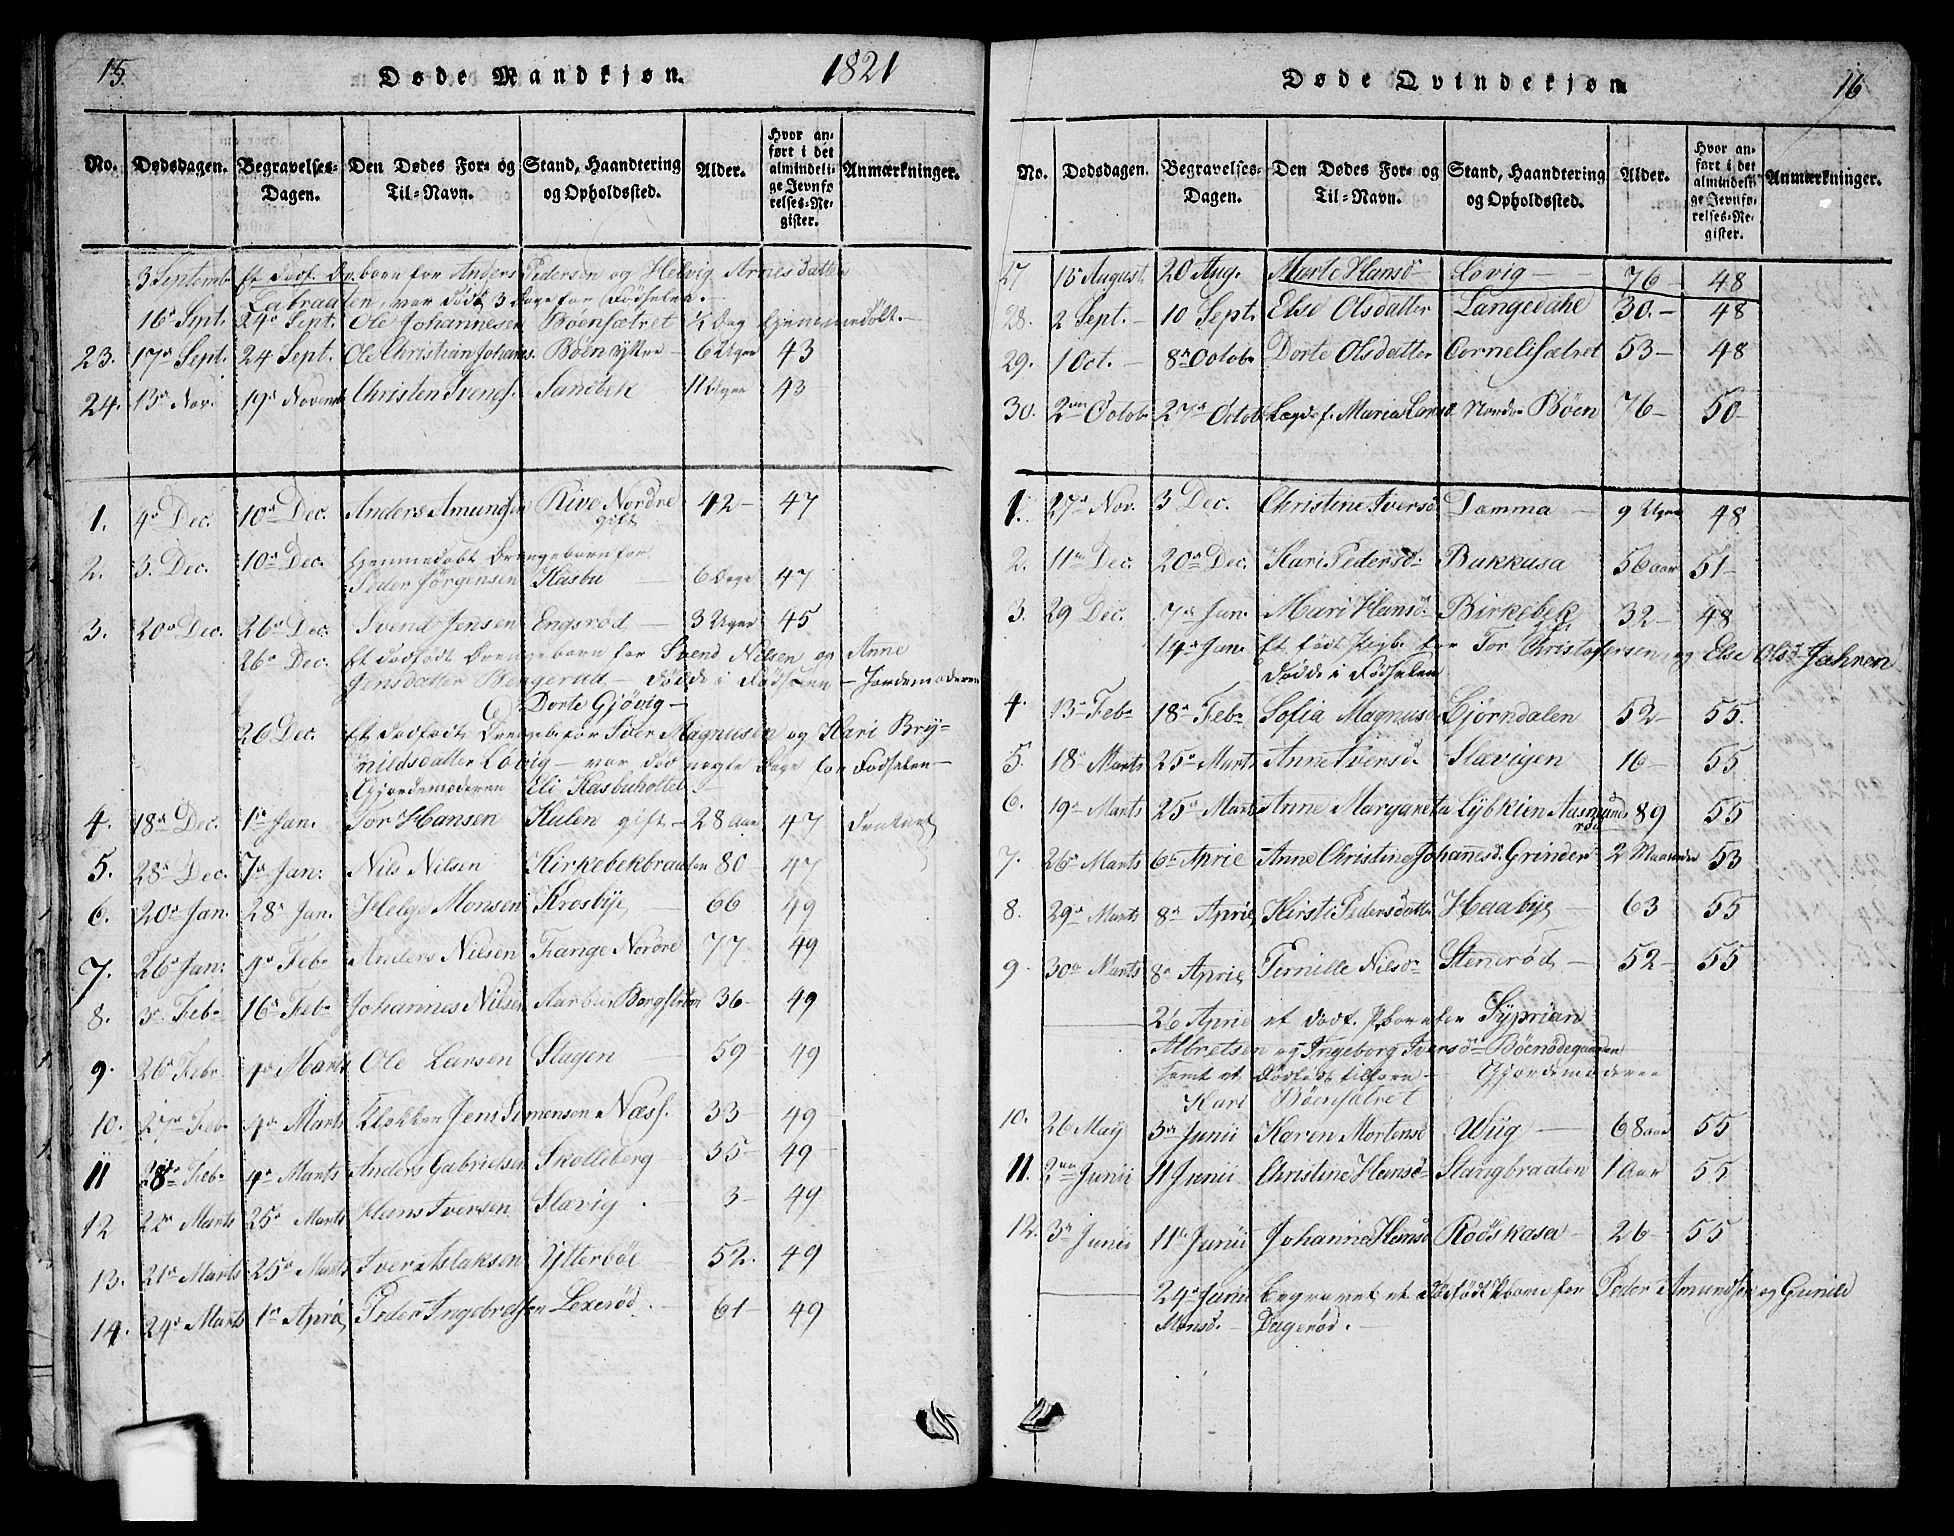 15. Døde Mandkjøn. 1821
No. Dødsdagen. Begravelses-Dagen. Den Dødes For- og Til-Navn. Stand, Haandtering og Opholdssted. Alder. Hvor anført i det almindelige Jevnførelses-Register. Anmærkninger.
3 Septemb. Et dødf. Dr.barn for Anders Pedersen og Helvig Arnesdatter
Tabraaten, var død 3 Dage før Fødselen.
16 Sept. 24 Sept. Ole Johannesen Bøensætret ½ Dag hjemmedøbt.
23. 17 Sept. 24 Sept. Ole Christian Johans. Bøen yttre 6 Uger 43
24. 13 Nov. 19 Novemb. Christen Svends. Sandbek 11 Uger 43
1. 4 Dec. 10 Dec. Anders Amundsen Kive Nordre 42 47
gift
2. 3. Dec. 10 Dec. Hjemmedøbt Drengebarn for
Peder Jørgensen Kasbu 6 Dage 47
3. 20 Dec. 26 Dec. Svend Jensen Engsrød 3 Uger 45
26 Dec. Et dødfødt Drengebarn for Svend Nilsen og Anne
Jensdatter Bengerud døde i Fødselen Jordemoderen
Dorte Gjøvig
26 Dec. Et dødfødt Drengeb. for Iver Magnusen og Kari Bry-
nildsdatter Løvig var død nogle Dage før Fødselen
Gjordemoderen Eli Kasbuholtet
4. 18 Dec. 1 Jan. Tor Hansen Hulen gift 28 aar 47 Druknet
5. 28 Dec. 7 Jan. Nils Nilsen Kirkebekbraaten 80 47
6. 20 Jan. 28 Jan. Helge Monsen Krosbye 66 49
7. 26 Jan. 4 Feb. Anders Nilsen Tange Nordre 77 49
8. 3 Feb. 16 Feb. Johannes Nilsen Aarbu Borgstrøm 36 49
9. 26 Febr. 4 Marts Ole Larsen Slagen 59 49
10. 27 Feb. 4 Marts Klokker Jens Simensen Næss. 33 49
11 28 Feb. 4 Marts Anders Gabrielsen Skolleborg 55 49
12 22 Marts 25 Marts Hans Iversen Slavig 3 49
13. 21 Marts 25 Marts Iver Aslaksen Ytterbøe 52. 49
14. 24 Marts 1 April Peder Ingebretsen Lexerød 61 49
Døde Qvindekjøn 16
No. Dødsdagen. Begravelses-Dagen. Den Dødes For- og Til-Navn. Stand, Haandtering og Opholdssted. Alder. Hvor anført i det almindelige Jevnførelses-Register. Anmærkninger.
27 15 August 20 Aug. Marte Hansd. Løvig 76 48
28. 2 Sept. 10 Sept. Else Olsdatter Langedahl 30. 48
29. 1 Oct. 8 Octob. Dorte Olsdatter Cornelisætret 53 48
30. 2 Octob. 27 Octob. Lægdsf. Maria Larsd. Nordre Bøen 76 50
1. 27 Nov. 3 Dec. Christine Iversd. Damma 9 Uger 48
2. 11 Dec. 20 Dec. Kari Pedersd. Bakkusa 56 aar 51
3. 29 Dec. 7 Jan. Mari Hansd. Birkebek 32 48
14 Jan. Et født Pigeb. for Tor Christofersen og Else Olsd. Jahren
døde i Fødselen
4. 13 Feb. 18 Feb. Sofia Magnusd. Bjørndalen 52 55.
5. 18 Marts 25 Marts Anne Iversd. Slavigen 16 55
6. 19 Marts 25 Marts Anne Margareta Lybkien Aasmunds 89 55
rød
7. 26 Marts 6 April Anne Christine Johannesd. Grinder 2 Maaneder 53
8. 29 Marts 8 April Kirsti Pedersdatter Haabye 63 55
9. 30 Marts 8 April Pernille Nilsd. Stenerød 52 55
26 April et dødf. P.barn for Syprian
Albretsen og Ingeborg Iversd. Bøenødegaarden
samt et dødfødt tilforn Gjordemoderen
Kari Bøensætret
10. 26 May 3 Junii Karen Mortensd. Wiig 68 aar 55
11. 2 Junii 11 Junii Christine Hansd. Stangbraaten 1 Aar 55
12. 3 Junii 11 Junii Johanne Hansd. Rødskasa 26 55
24 Junii begravet et dødfødt P.barn for Peder Amundsen og Gunild
Monsd. Dagerød.